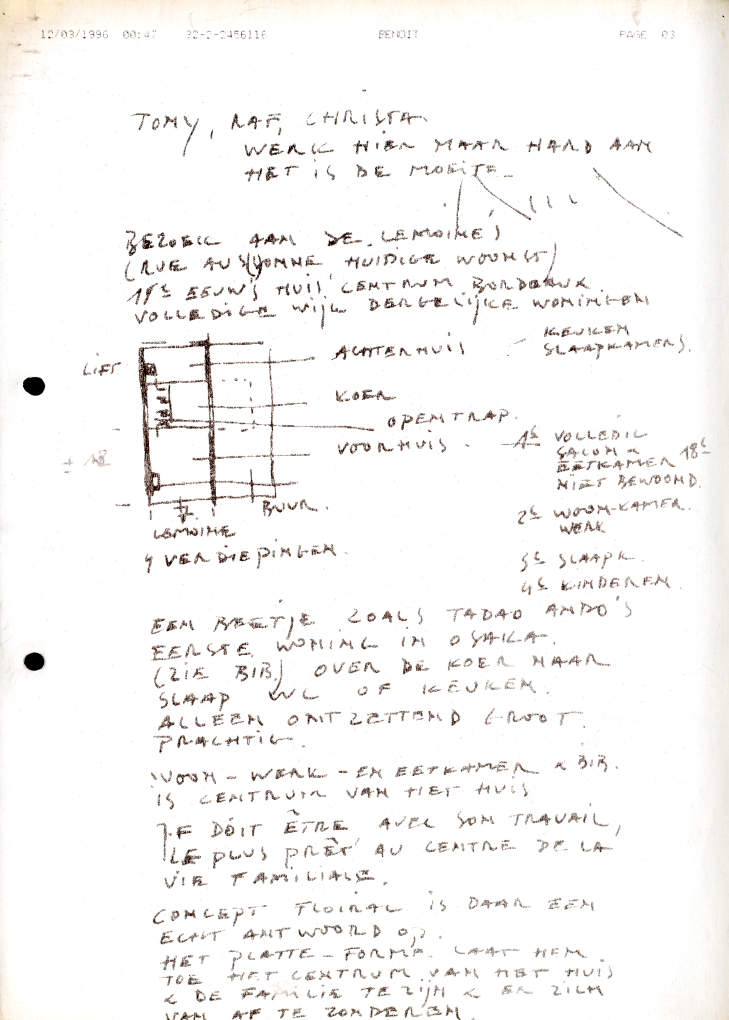 12/03/1996 00:47 32-2-2456116 BENOIT PAGE 03
TOMY, RAF, CHRISTA.
WERK HIER MAAR HARD AAN
HET IS DE MOEITE
BEZOEK AAN DE LEMOINE'S
(RUE AUSONNE HUIDIGE WOONST)
18E EEUW'S HUIS CENTRUM BORDEAUX.
VOLLEDIGE WIJK DERGELIJKE WONINGEN
LIFT
ACHTERHUIS
KEUKEN
SLAAPKAMERS.
KOER
OPEN TRAP.
VOORHUIS.
1E VOLLEDIG
SALON &
EETKAMER 18E
NIET BEWOOND.
2E WOON-KAMER.
WERK
3E SLAAPK.
4E KINDEREN.
± 18
LEMOINE
BUUR.
4 VERDIEPINGEN.
EEN BEETJE ZOALS TADAO ANDO'S
EERSTE WONING IN OSAKA.
(ZIE BIB.) OVER DE KOER NAAR
SLAAP WC OF KEUKEN.
ALLEEN ONTZETTEND GROOT.
PRACHTIG.
WOON-WERK-EN EETKAMER & BIB.
IS CENTRUM VAN HET HUIS
JE DOIT ÊTRE AVEC SON TRAVAIL,
LE PLUS PRÊT AU CENTRE DE LA
VIE FAMILIALE.
CONCEPT FLOIRAC IS DAAR EEN
ECHT ANTWOORD OP.
HET PLATTE-FORME LAAT HEM
TOE HET CENTRUM VAN HET HUIS
& DE FAMILIE TE ZIJN & ER ZICH
VAN AF TE ZONDEREN.